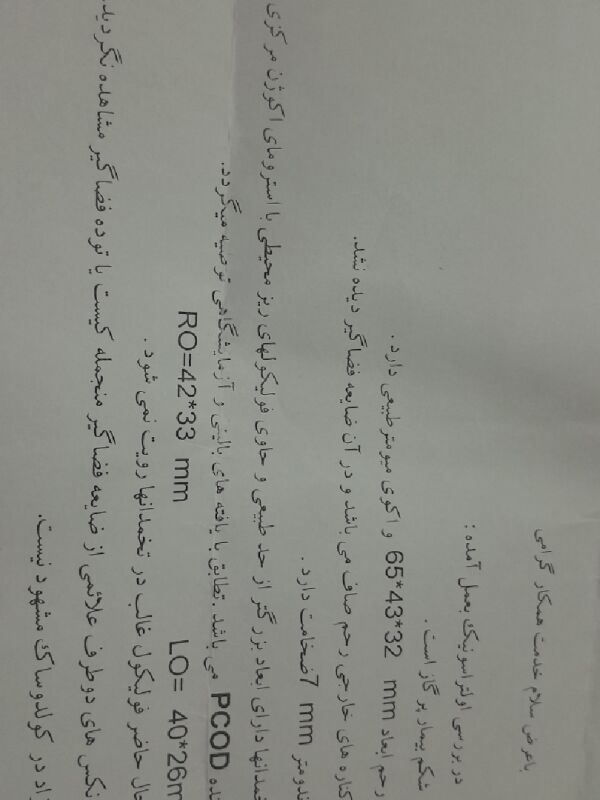 باعرض سلام خدمت همکار گرامی
در بررسی اولتراسونیک بعمل آمده :
شکم بیمار پر گاز است .
رحم ابعاد 65*43*32 mm و اکوی میومتر طبیعی دارد .
کناره های خارجی رحم صاف می باشد و در آن ضایعه فضاگیر دیده نشد.
ندومتر 7 mm ضخامت دارد .
خمدانها دارای ابعاد بزرگتر از حد طبیعی و حاوی فولیکولهای ریز محیطی با استرومای اکوژن مرکزی
نده PCOD می باشد .تطابق با یافته های بالینی و آزمایشگاهی توصیه میگردد.
RO=42*33 mm LO= 40*26m
حال حاضر فولیکول غالب در تخمدانها رویت نمی شود .
نکس های دو طرف علائمی از ضایعه فضاگیر منجمله کیست یا توده فضاگیر مشاهده نگردید.
زاد در کولدوساک مشهود نیست.